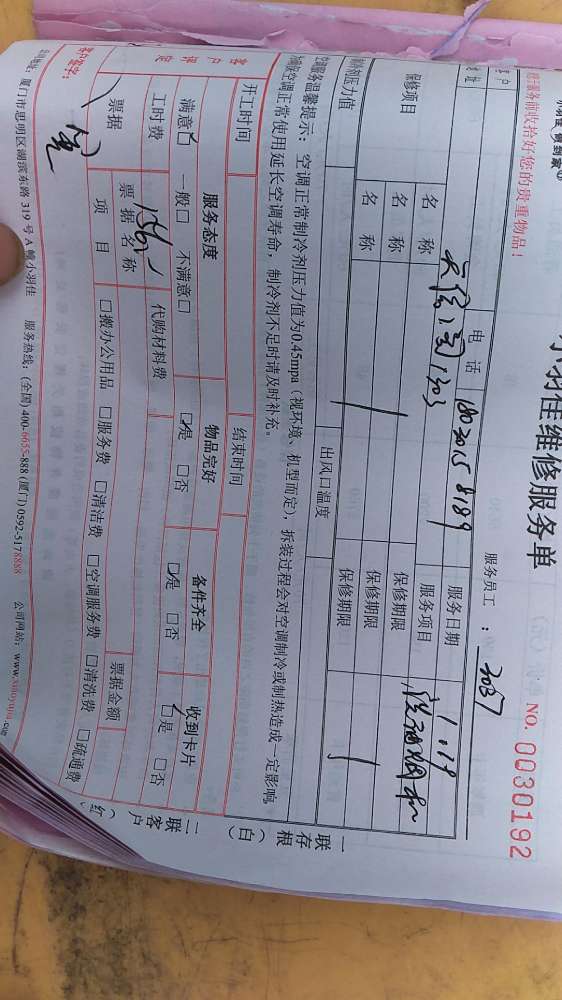 小羽佳 帮到家®
小羽佳维修服务单
NO. 0030192
提示服务前收拾好您的贵重物品!
服务员工:3037
客户
电话 18030158189
服务日期
地址
1303
服务项目 洗油烟机
保修项目 名称 保修期限
名称 保修期限
名称 保修期限
制冷剂压力值 出风口温度
空调服务温馨提示:空调正常制冷剂压力值为0.45mpa(视环境、机型而定),拆装过程会对空调制冷或制热造成一定影响,
为确保空调正常使用延长空调寿命,制冷剂不足时请及时补充。
开工时间 结束时间
客户评定
服务态度 物品完好 备件齐全 收到卡片
满意☑ 一般□ 不满意□ ☑是 □否 ☑是 □否 ☑是 □否
工时费 156 代购材料费
票据 票据名称 票据金额
项目 □搬办公用品 □服务费 □清洁费 □空调服务费 □清洗费 □疏通费
客户签字:
公司地址:厦门市思明区湖滨东路319号A幢小羽佳 服务热线:(全国)400-6655-888 (厦门)0592-5178888 公司网站:www.xiaoyujia.com
一联存根(白)
二联客户(红)